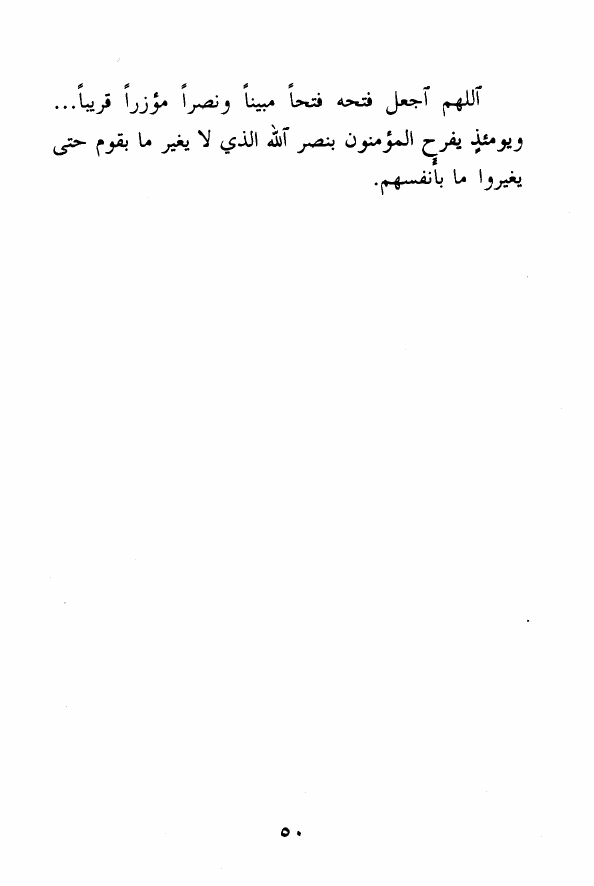 ٱللهم ٱجعل فتحه فتحاً مبيناً ونصراً مؤزراً قريباً...
ويومئذٍ يفرح المؤمنون بنصر ٱلله الذي لا يغير ما بقوم حتى
يغيروا ما بأنفسهم.
٥٠